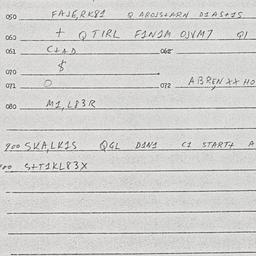 050 FAJE,RK81 Q AROJS+ARN D1AS+1S
060 + QTIRL F1N1M OJVM7 Q1
061 C++D 065
070 $
071 O 072 ABREN,XX HO
080 M1,L83R
900 SKA,LK1S QGL D1N1 C1 START+ A
900 S+T1KL83X